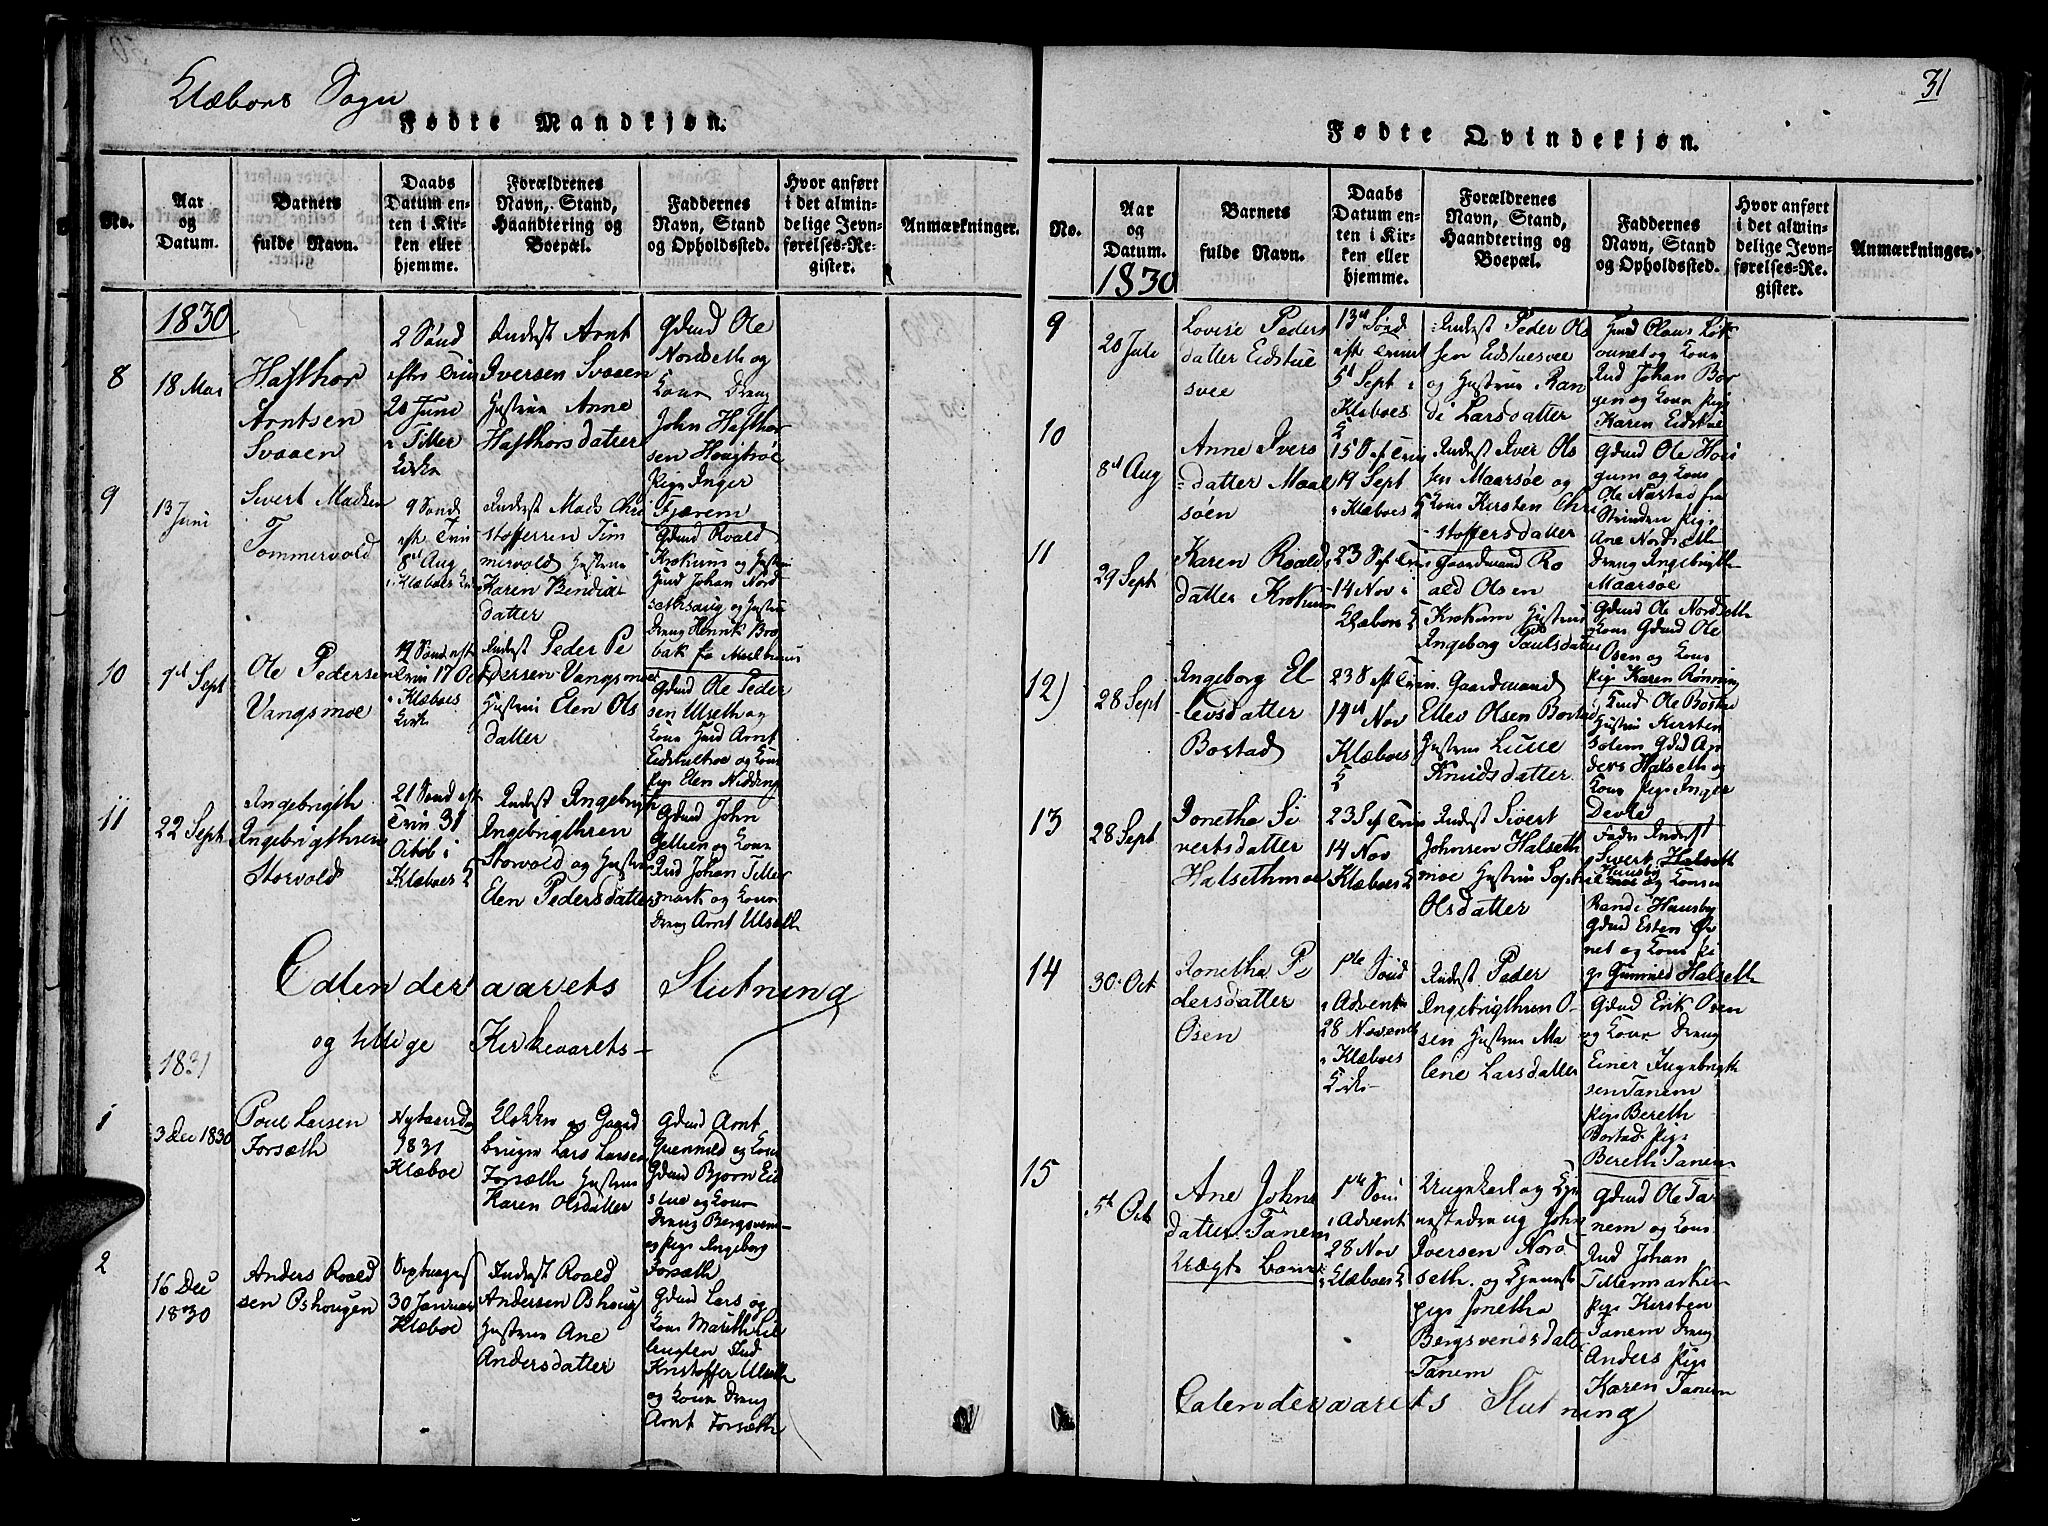 Klæboes Sogn
Fødte Mandkjøn.
No.
Aar og Datum.
Barnets fulde Navn.
Daabs Datum enten i Kirken eller hjemme.
Forældrenes Navn, Stand, Haandtering og Boepæl.
Faddernes Navn, Stand og Opholdssted.
Hvor anført i det almindelige Jevnførelses-Register.
Anmærkninger.
1830
8
18 Mai
Hafthor
Arntsen
Svaaen
2 Sönd
efter Trin
20 Juni
i Tiller
Kirke
Inderst Arnt
Iversen Svaaen
Hustrue Anne
Hafthorsdatter
Gdmd Ole
Nordseth og
Kone Dreng
John Hafthor
sen
Pige Inger
Fjærem
9
13 Juni
Sivert Madsen
Tommervold
9 Sönd
eft Trin
8d Aug
i Klæboes Kirke
Inderst Mads Chri
stoffersen Tim
mervold Hustrue
Karen Bendix
datter
Gdmd Roald
Krokum og Hustrue
Hmd Johan Nord
og Hustrue
Dreng Henrik Bro
bak fra
10
9d Sept
Ole Pedersen
Vangsmoe
19 Sönd eft
Trin 17 Oc
i Klæboes
Kirke
Inderst Peder Pe
dersen Vangsmoe
Hustrue Elen Ols
datter
Gdmd Ole Peder
sen Ulseth og
Kone Hmd Arnt
og Kone
Pige Elen
11
22 Sept
Ingebrigth
Ingebrigthsen
Storvold
21 Sönd eft
Trin 31
Octob i
Klæboes K
Inderst Ingebrigth
Ingebrigthsen
Storvold og Hustrue
Elen Pedersdatter
Gdmd John
og Kone
Ind Johan Tiller
mark og Kone
Dreng Arnt Ulseth
Calenderaarets Slutning
og tillige Kirkeaarets
1831
1
3 Dec 1830
Poul Larsen
Forsæth
Nytaarsdag
1831
Klæboe
Klokker og Gaard
bruger Lars Larsen
Forsæth Hustrue
Karen Olsdatter
Gdmd Arnt
og Kone
Gdmd Bjørn Eid
stue og Kone
Dreng Bergsvend
og Pige Ingeborg
Forsæth
2
16 Dec
1830
Anders Roald
sen Oshougen
Septuages
30 Januar
Klæboe
Inderst Roald
Andersen Oshoug
Hustrue Ane
Andersdatter
Gdmd Lars og
Kone Marith Lil
eugten Ind
Kristoffer Ulseth
og Kone Dreng
Arnt Forsæth
31
Fødte Qvindekjøn.
No.
Aar og Datum.
Barnets fulde Navn.
Daabs Datum enten i Kirken eller hjemme.
Forældrenes Navn, Stand, Haandtering og Boepæl.
Faddernes Navn, Stand og Opholdssted.
Hvor anført i det almindelige Jevnførelses-Register.
Anmærkninger.
1830
9
20 Juli
Lovise Peders
datter Eidstue
svee
13d Sönd
eft Trinit
5d Sept i
Klæboes
K
Inderst Peder Ols
sen Eidstuesvee
og Hustrue Ran
di Larsdatter
Hmd Claus
og Kone
Ind Johan Bor
gen og Kone Pige
Karen Eidstue
10
8d Aug
Anne Ivers
datter Maar
söen
15 S eft Trin
19 Sept
i Klæboes K
Inderst Iver Ols
sen Maarsøe og
Kone Kirsten Chri
stoffersdatter
Gdmd Ole Hoei
gum og Kone
Ole Nastad fra
Strinden Pige
Ane Nordseth
Dreng Ingebrigth
Maarsøe
11
29 Sept
Karen Roalds
datter Krokum
23 S eft Trin
14 Nov i
Klæboes K
Gaardmand Ro
ald Olsen
Krokum Hustrue
Ingeborg Paulsdatter
Gdmd Ole Nordseth
Kone Gdmd Ole
Osen og Kone
Pige Karen Rønning
12)
28 Sept
Ingeborg El
levsdatter
Bostad
23 S eft Trin
14d Nov
Klæboes
K
Gaardmand
Ellev Olsen Bostad
Hustrue Lusse
Knudsdatter
Ole Bostad
Hustrue Kirsten
Solem Gdmd An
ders Halseth og
Kone Pige Inger
Devle
13
28 Sept
Jonetha Si
vertsdatter
Halsethmoe
23 S eft Trin
14 Nov
Klæboes K
Inderst Sivert
Johnsen Halseth
moe Hustrue Sophie
Olsdatter
Fader Inderst
Sivert Halseth
moe og Konen
Randi Hansby
Gdmd Esten
og Kone Pi
ge Gunnild Halseth
14
30 Oct
Jonetha Pe
dersdatter
Osen
1ste Sönd
i Advent
28 Novemb
i Klæboes
Kirke
Inderst Peder
Ingebrigthsen O
sen Hustrue Ma
lene Larsdatter
Gdmd Erik Osen
og Kone Dreng
Einer Ingebrigth
sen Tanem
Pige Bereth
Bostad Pige
Bereth Tanem
15
5t Oct
Ane Johns
datter Tanem
Uægte barn
1ste Sönd
i Advent
28 Nov
Klæboes K
Ungekarl og Tje
nestedreng John
Iversen Nord
seth og Tjeneste
pige Jonetha
Bergsvendsdatter
Tanem
Gdmd Ole Ta
nem og Kone
Ind Johan
Tillermarken
Pige Kirsten
Tanem Dreng
Anders Pige
Karen Tanem
Calenderaarets Slutning